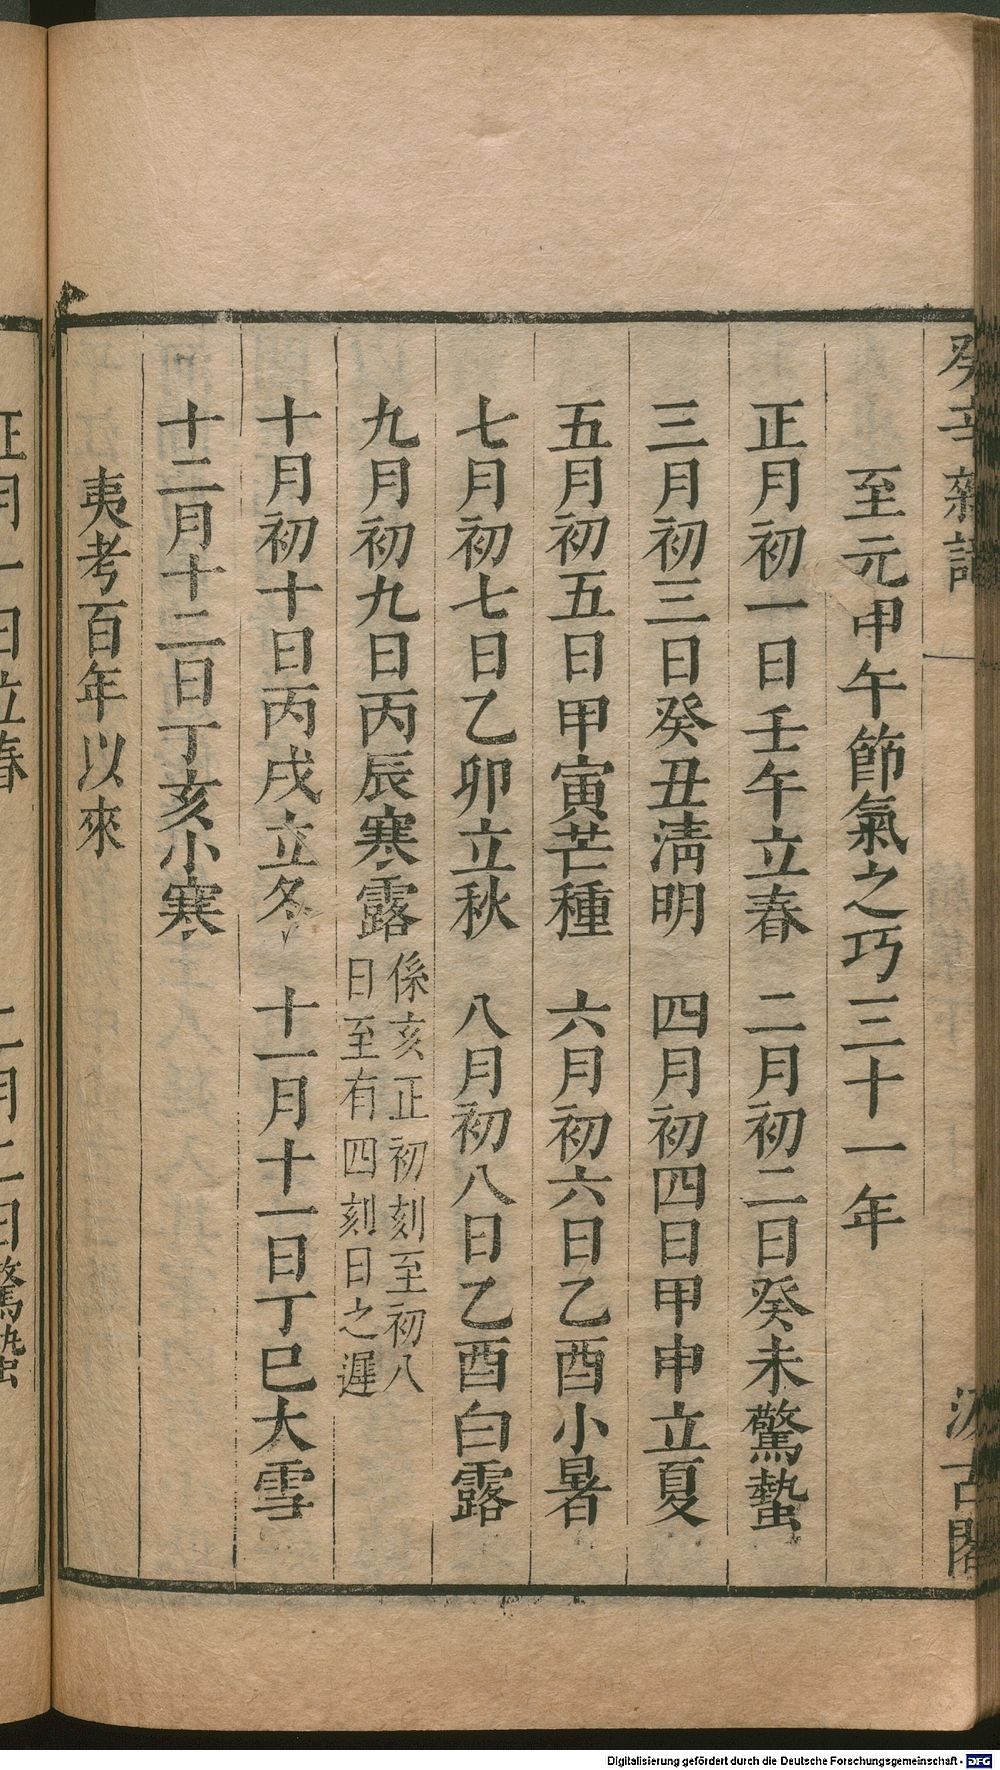 癸辛雜識
汲古閣
至元甲午節氣之巧三十一年
正月初一日壬午立春　二月初二日癸未驚蟄
三月初三日癸丑淸明　四月初四日甲申立夏
五月初五日甲寅芒種　六月初六日乙酉小暑
七月初七日乙卯立秋　八月初八日乙酉白露
九月初九日丙辰寒露
係亥正初刻至初八
日至有四刻日之遲
十月初十日丙戌立冬　十一月十一日丁巳大雪
十二月十二日丁亥小寒
夷考百年以來
正月一日立春　二月二日驚蟄
Digitalisierung gefördert durch die Deutsche Forschungsgemeinschaft - DFG